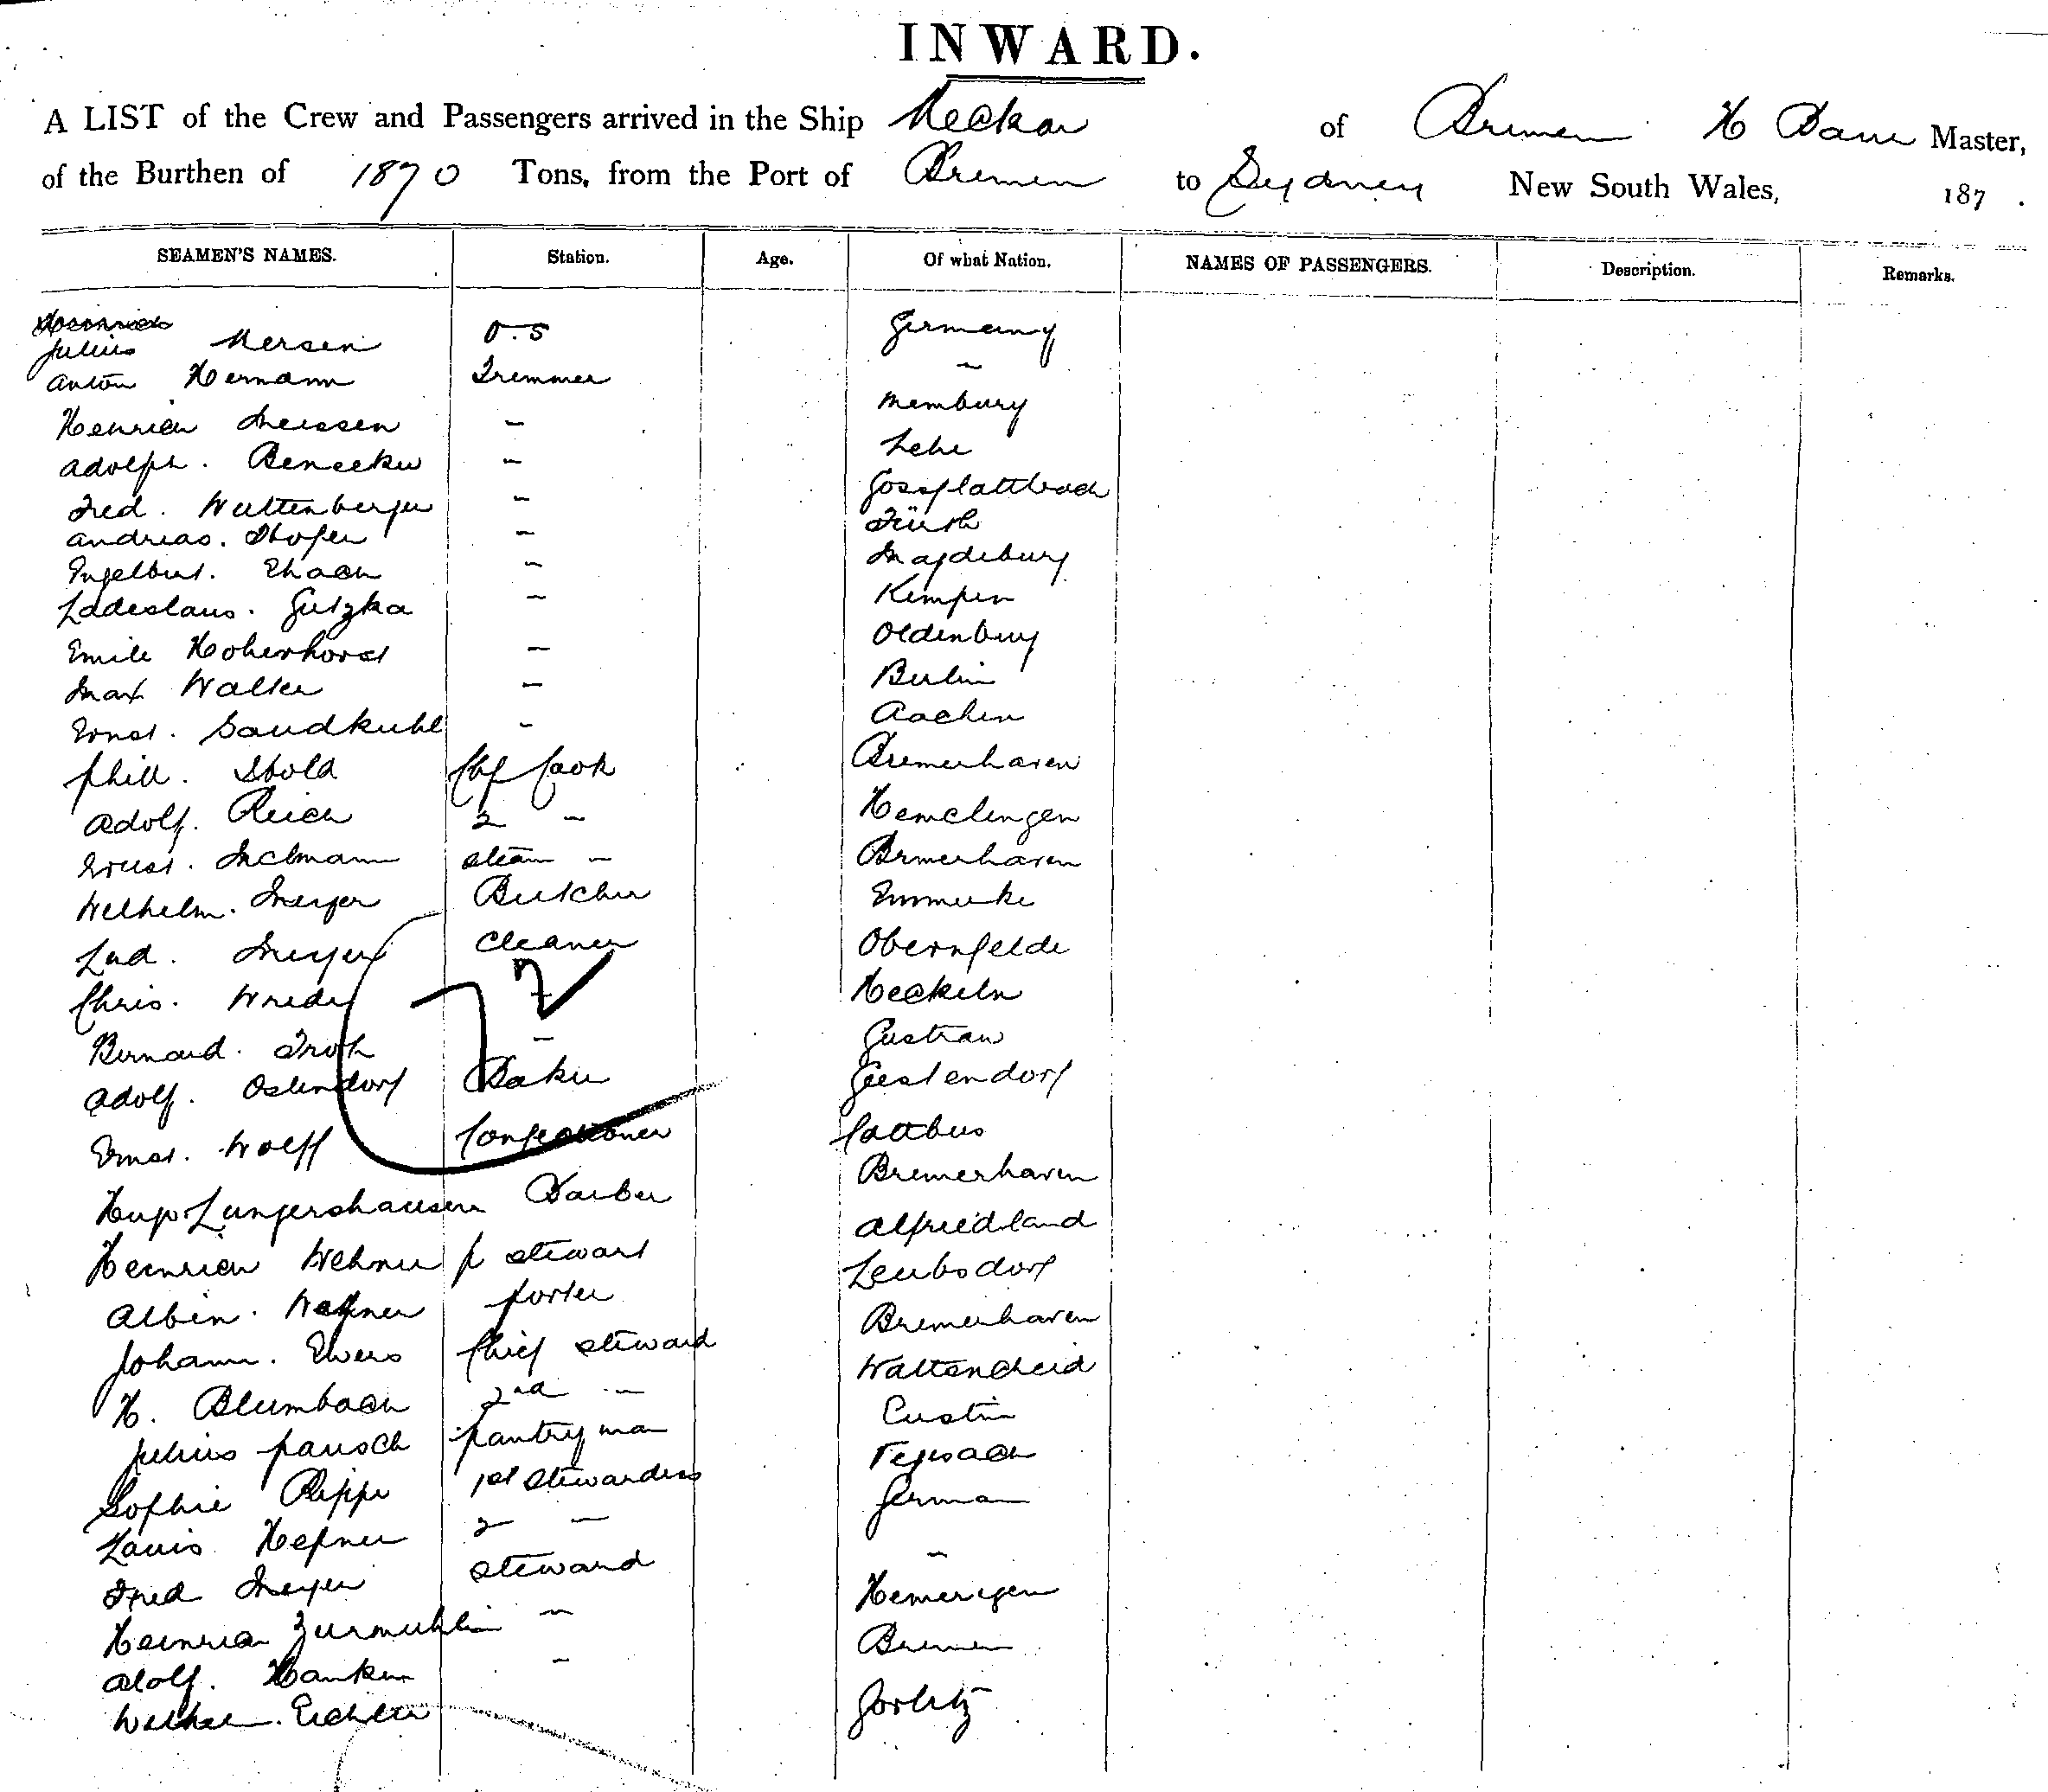 INWARD.
A LIST of the Crew and Passengers arrived in the Ship Neckar of Bremen H Baur Master,
of the Burthen of 1870 Tons, from the Port of Bremen to Sydney New South Wales, 187 .
SEAMEN'S NAMES. Station. Age. Of what Nation. NAMES OF PASSENGERS. Description. Remarks.
Julius Mersen O.S Germany
Anton Hermann Tremmer "
Heinrich Meissen " Membury
Adolph. Benecke " Lehe
Fred. Wuttenberger "
Andreas. " Fürth
" Magdeburg
Ladeslaus. Gutzka " Kempen
Emile Hoherhorst " Oldenburg
Max Walter " Berlin
Ernst. Sandkuhl " Aachen
Phill. Chf Cook Bremerhaven
Adolf. Reich 2 " Hemelingen
Ernst. steam " Bremerhaven
Wilhelm. Meyer Butcher Emmerke
Lud. Meyer Cleaner Obernfelde
Chris. Wrede 7 "
Bernard. Troth " Gustrow
Adolf. Ostendorf Baker Geestendorf
Ernst. Wolff Confectioner Cottbus
Hugo Lungershausen Barber Bremerhaven
Heinrich Wehner p stewart Alfriedland
Albin. Porter Leubsdorf
Johann. Ewers Chief steward Bremerhaven
H. Blumbach 2nd " Wattenscheid
Julius Pausch pantryman Custrin
Sophie Rippe 1st Stewardess Vegesack
Louis Hefner 2 " German
Fred Meyer steward "
Heinrich Zurmuhlen " Hemeringen
Adolf. Hanken " Bremen
Wilhelm. Eichler Gorlitz